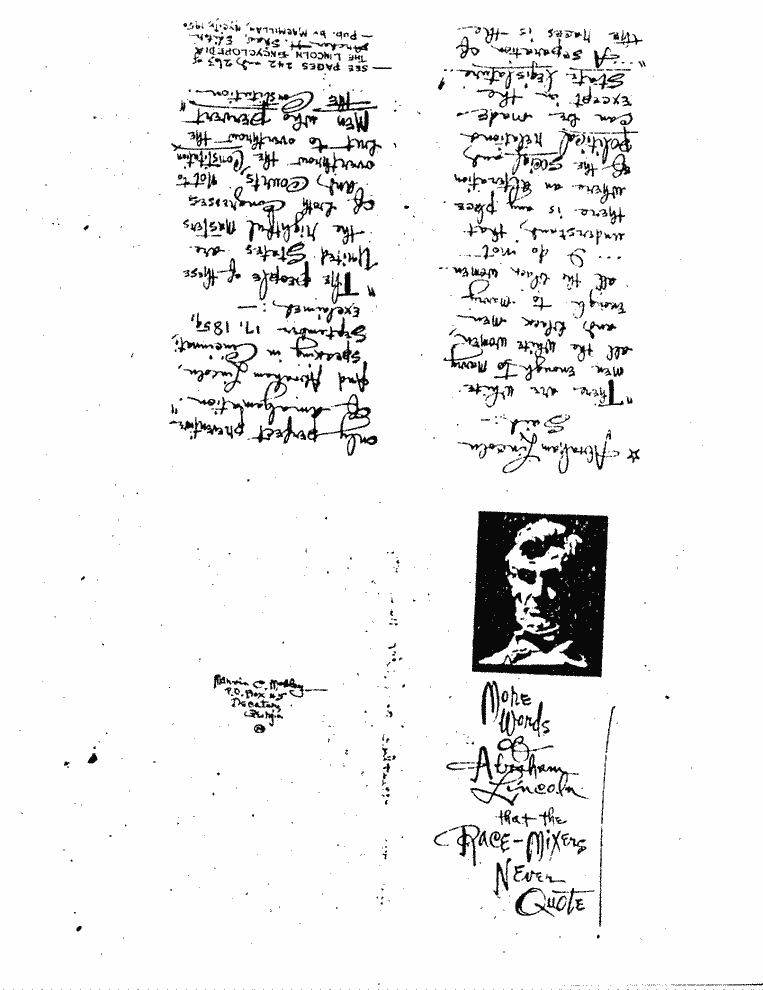 More
Words
of
Abraham
Lincoln
that the
RACE-MIXERS
NEVER
QUOTE
☆ Abraham Lincoln
Said:-
"There are white
men enough to marry
all the white women,
and black men
enough to marry
all the black women
... I do not
understand, that
there is any place
where an alteration
of the social and
political relations
can be made
except in the
State Legislature
"... A separation of
the races is the
only perfect preventive
of amalgamation."
And Abraham Lincoln,
speaking in Cincinnati,
September 17, 1859,
exclaimed:-
"The people of these
United States are
the rightful masters
of both Congresses
and Courts, not to
overthrow the Constitution
but to overthrow the
men who pervert
THE Constitution..."
— SEE PAGES 242 and 263 of
THE LINCOLN ENCYCLOPEDIA
Archer H. Shaw, Editor
— Pub. by MACMILLAN, NYCity, 1950
P.O. Box #5
Decatur,
Georgia